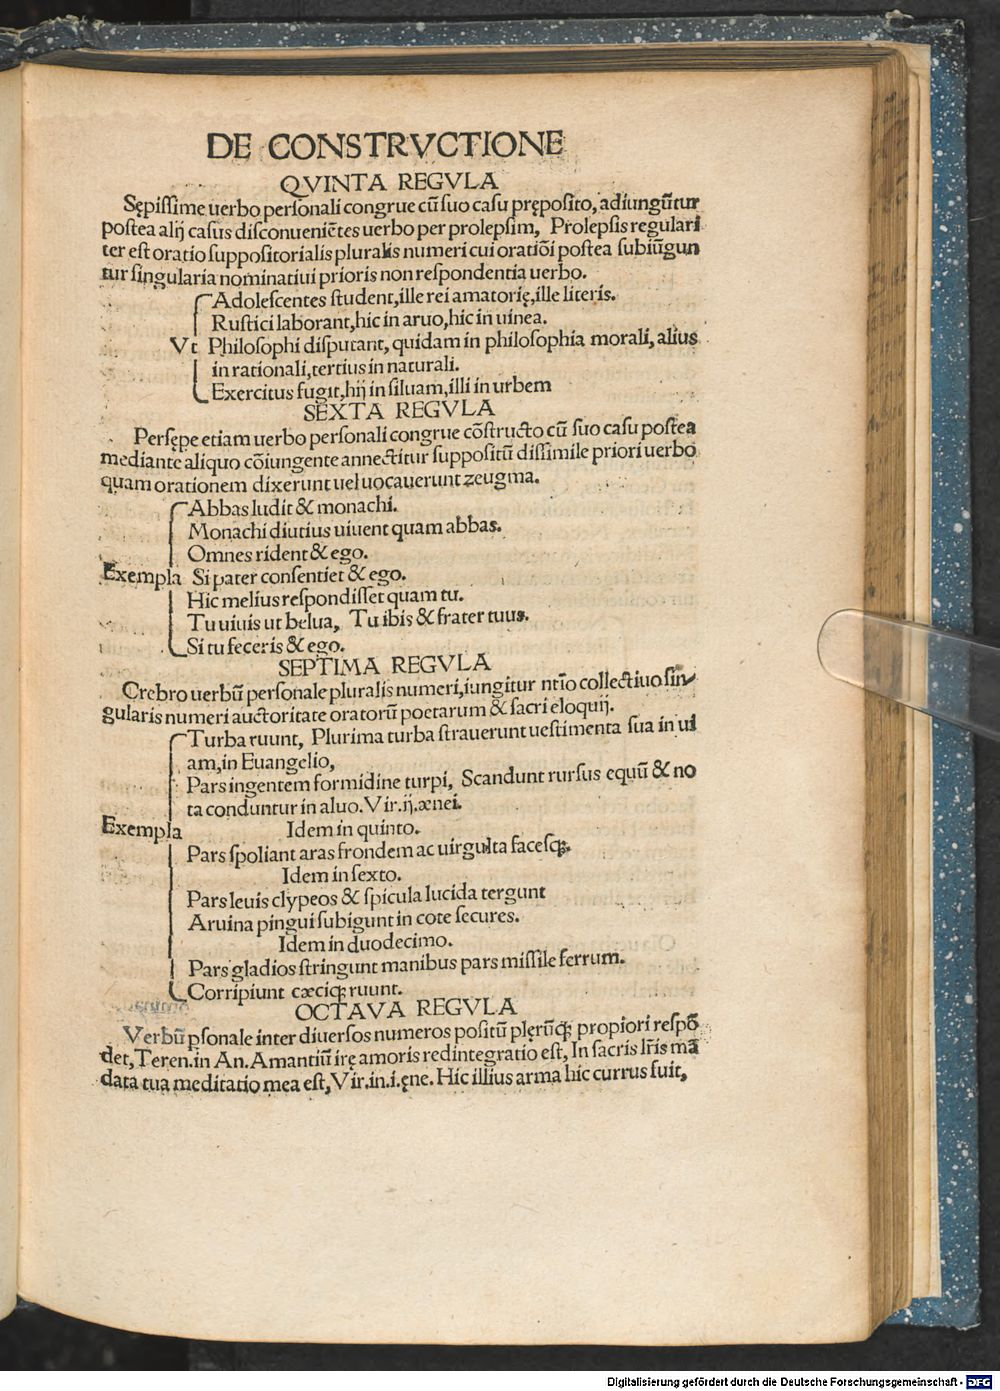 DE CONSTRVCTIONE
QVINTA REGVLA
Sępiſſime uerbo perſonali congrue cū ſuo caſu prępoſito, adiungūtur
poſtea alij caſus diſconueniētes uerbo per prolepſim, Prolepſis regulari
ter eſt oratio ſuppoſitorialis pluralis numeri cui oratiōi poſtea ſubiūgun
tur ſingularia nominatiui prioris non reſpondentia uerbo.
Adoleſcentes ſtudent, ille rei amatorię, ille literis.
Ruſtici laborant, hic in aruo, hic in uinea.
Vt Philoſophi diſputant, quidam in philoſophia morali, alius
in rationali, tertius in naturali.
Exercitus fugit, hij in ſiluam, illi in urbem
SEXTA REGVLA
Perſępe etiam uerbo perſonali congrue cōſtructo cū ſuo caſu poſtea
mediante aliquo cōiungente annectitur ſuppoſitū diſſimile priori uerbo
quam orationem dixerunt uel uocauerunt zeugma.
Abbas ludit & monachi.
Monachi diutius uiuent quam abbas.
Omnes rident & ego.
Exempla Si pater conſentiet & ego.
Hic melius reſpondiſſet quam tu.
Tu uiuis ut belua, Tu ibis & frater tuus.
Si tu feceris & ego.
SEPTIMA REGVLA
Crebro uerbū perſonale pluralis numeri, iungitur ntīo collectiuo ſin
gularis numeri auctoritate oratorū poetarum & ſacri eloquij.
Turba ruunt, Plurima turba ſtrauerunt ueſtimenta ſua in ui
am, in Euangelio,
Pars ingentem formidine turpi, Scandunt rurſus equū & no
ta conduntur in aluo. Vir. ij. ænei.
Exempla Idem in quinto.
Pars ſpoliant aras frondem ac uirgulta faceſqꝫ.
Idem in ſexto.
Pars leuis clypeos & ſpicula lucida tergunt
Aruina pingui ſubigunt in cote ſecures.
Idem in duodecimo.
Pars gladios ſtringunt manibus pars miſſile ferrum.
Corripiunt cæciqꝫ ruunt.
OCTAVA REGVLA
Verbū pſonale inter diuerſos numeros poſitū plęrūqꝫ propiori reſpō
det, Teren. in An. Amantiū irę amoris redintegratio eſt, In ſacris lr̄is mā
data tua meditatio mea eſt, Vir. in. i. ęne. Hic illius arma hic currus fuit,
Digitalisierung gefördert durch die Deutsche Forschungsgemeinschaft - DFG